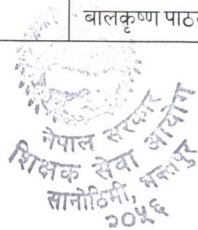 बालकृष्ण पाठ
नेपाल सरकार
शिक्षक सेवा आयोग
सानोठिमी, भक्तपुर
२०५६